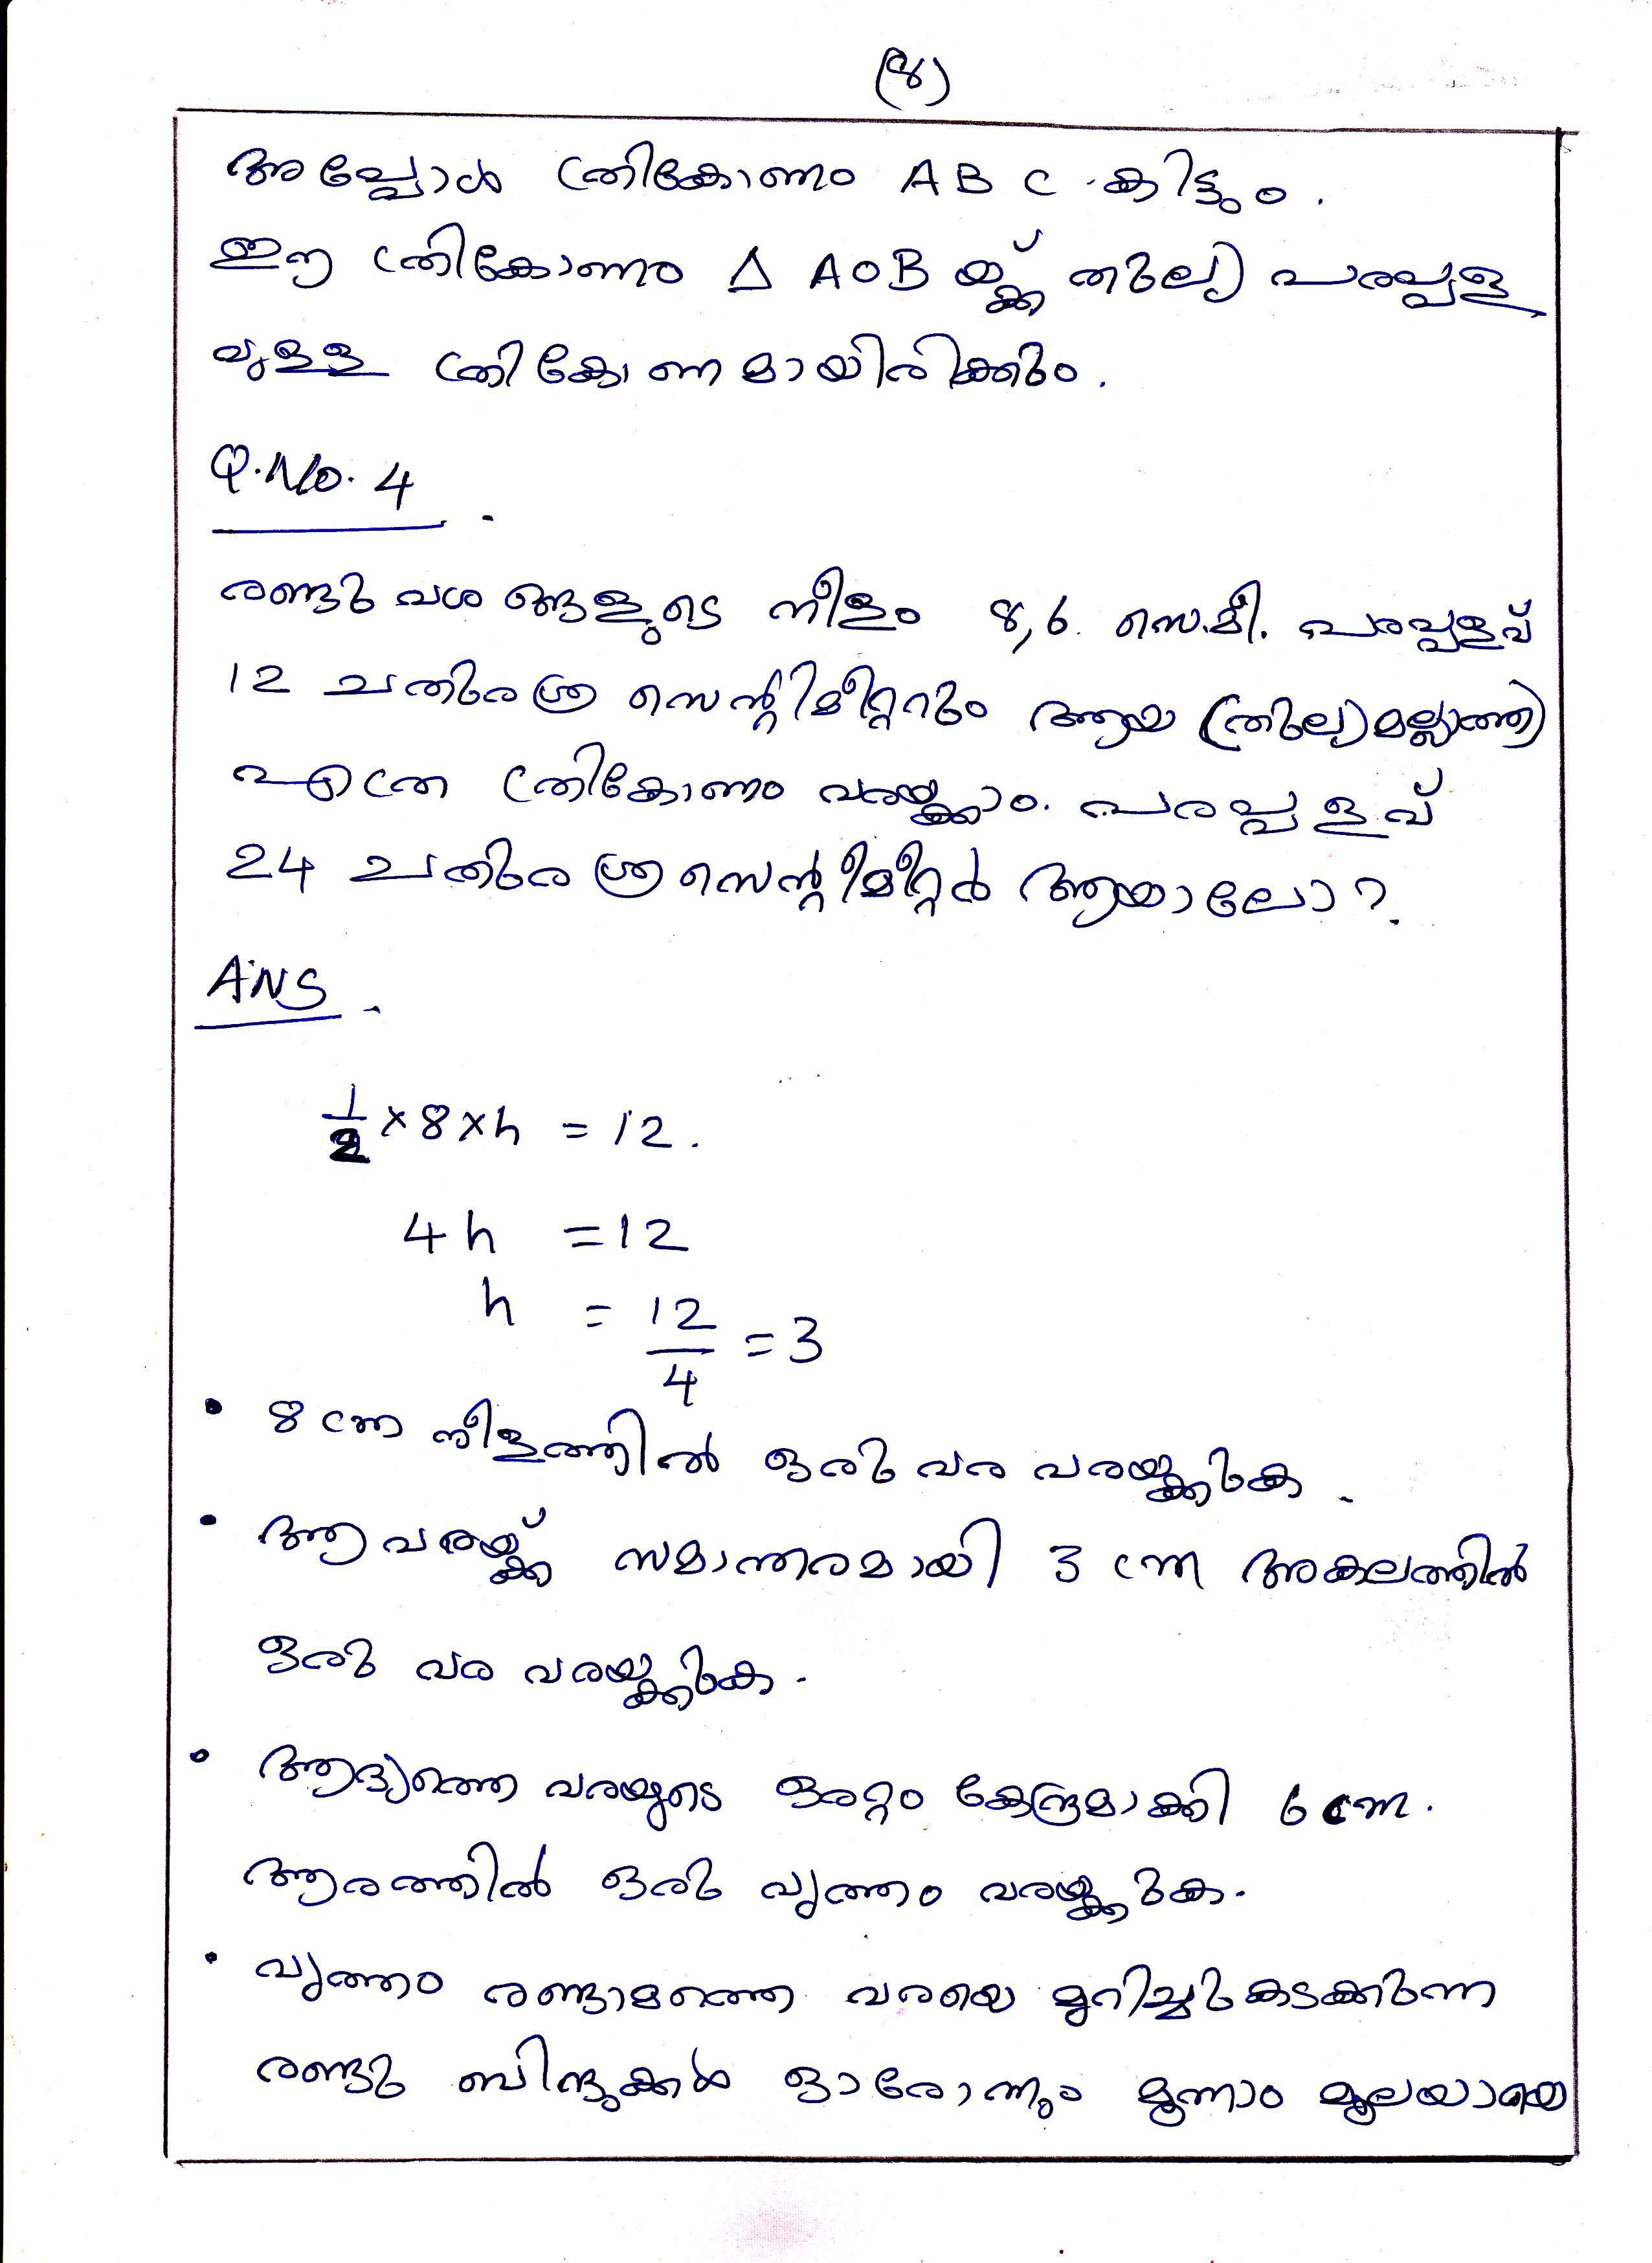 (8)
അപ്പോൾ ത്രികോണം A B C കിട്ടും.
ഈ ത്രികോണം Δ AOB യ്ക്ക് തുല്യ പരപ്പള
വുള്ള ത്രികോണമായിരിക്കും.
Q.No. 4
രണ്ടു വശങ്ങളുടെ നീളം 8,6 സെ.മീ. പരപ്പളവ്
12 ചതുരശ്ര സെന്റിമീറ്ററും ആയ (തുല്യമല്ലാത്ത)
എത്ര ത്രികോണം വരയ്ക്കാം. പരപ്പളവ്
24 ചതുരശ്രസെന്റീമീറ്റർ ആയാലോ?.
ANS
1/2 × 8 × h = 12.
4h = 12
h = 12/4 = 3
• 8 cm നീളത്തിൽ ഒരു വര വരയ്ക്കുക.
• ആ വരയ്ക്ക് സമാന്തരമായി 3 cm അകലത്തിൽ
ഒരു വര വരയ്ക്കുക.
• ആദ്യത്തെ വരയുടെ ഒരറ്റം കേന്ദ്രമാക്കി 6 cm.
ആരത്തിൽ ഒരു വൃത്തം വരയ്ക്കുക.
• വൃത്തം രണ്ടാമത്തെ വരയെ മുറിച്ചുകടക്കുന്ന
രണ്ടു ബിന്ദുക്കൾ ഓരോന്നും മൂന്നാം മൂലയായെ